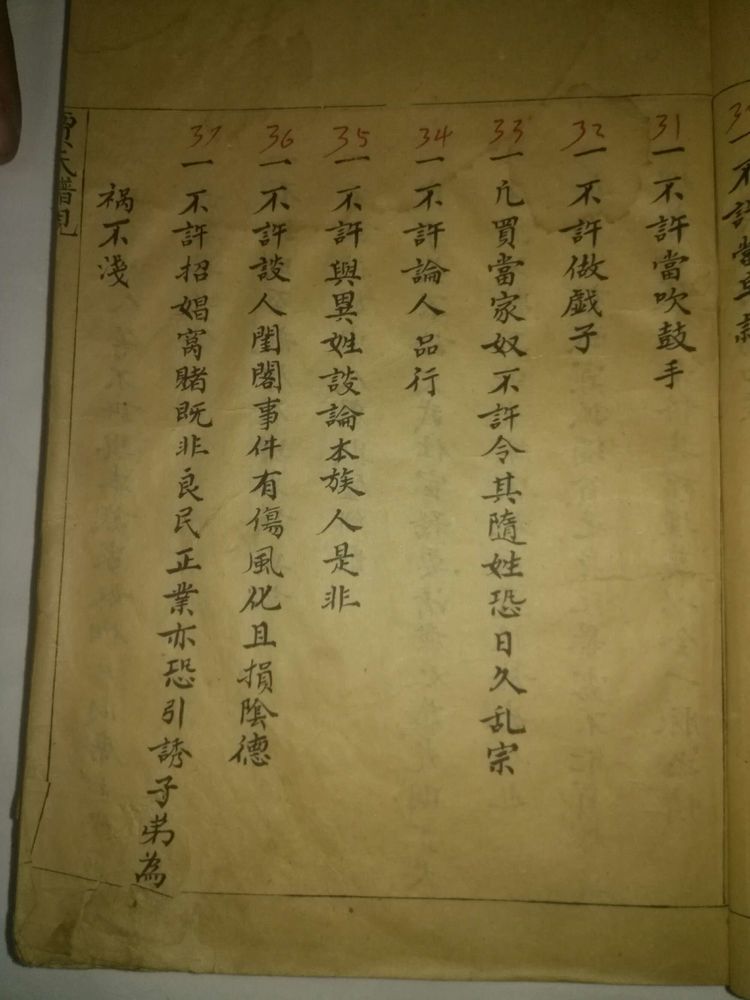 31 一不許當吹鼓手
32 一不許做戯子
33 一凢買當家奴不許令其隨姓恐日久乱宗
34 一不許論人品行
35 一不許與異姓談論本族人是非
36 一不許談人閨閣事件有傷風化且損陰德
37 一不許招娼窩賭既非良民正業亦恐引誘子弟為
祸不淺